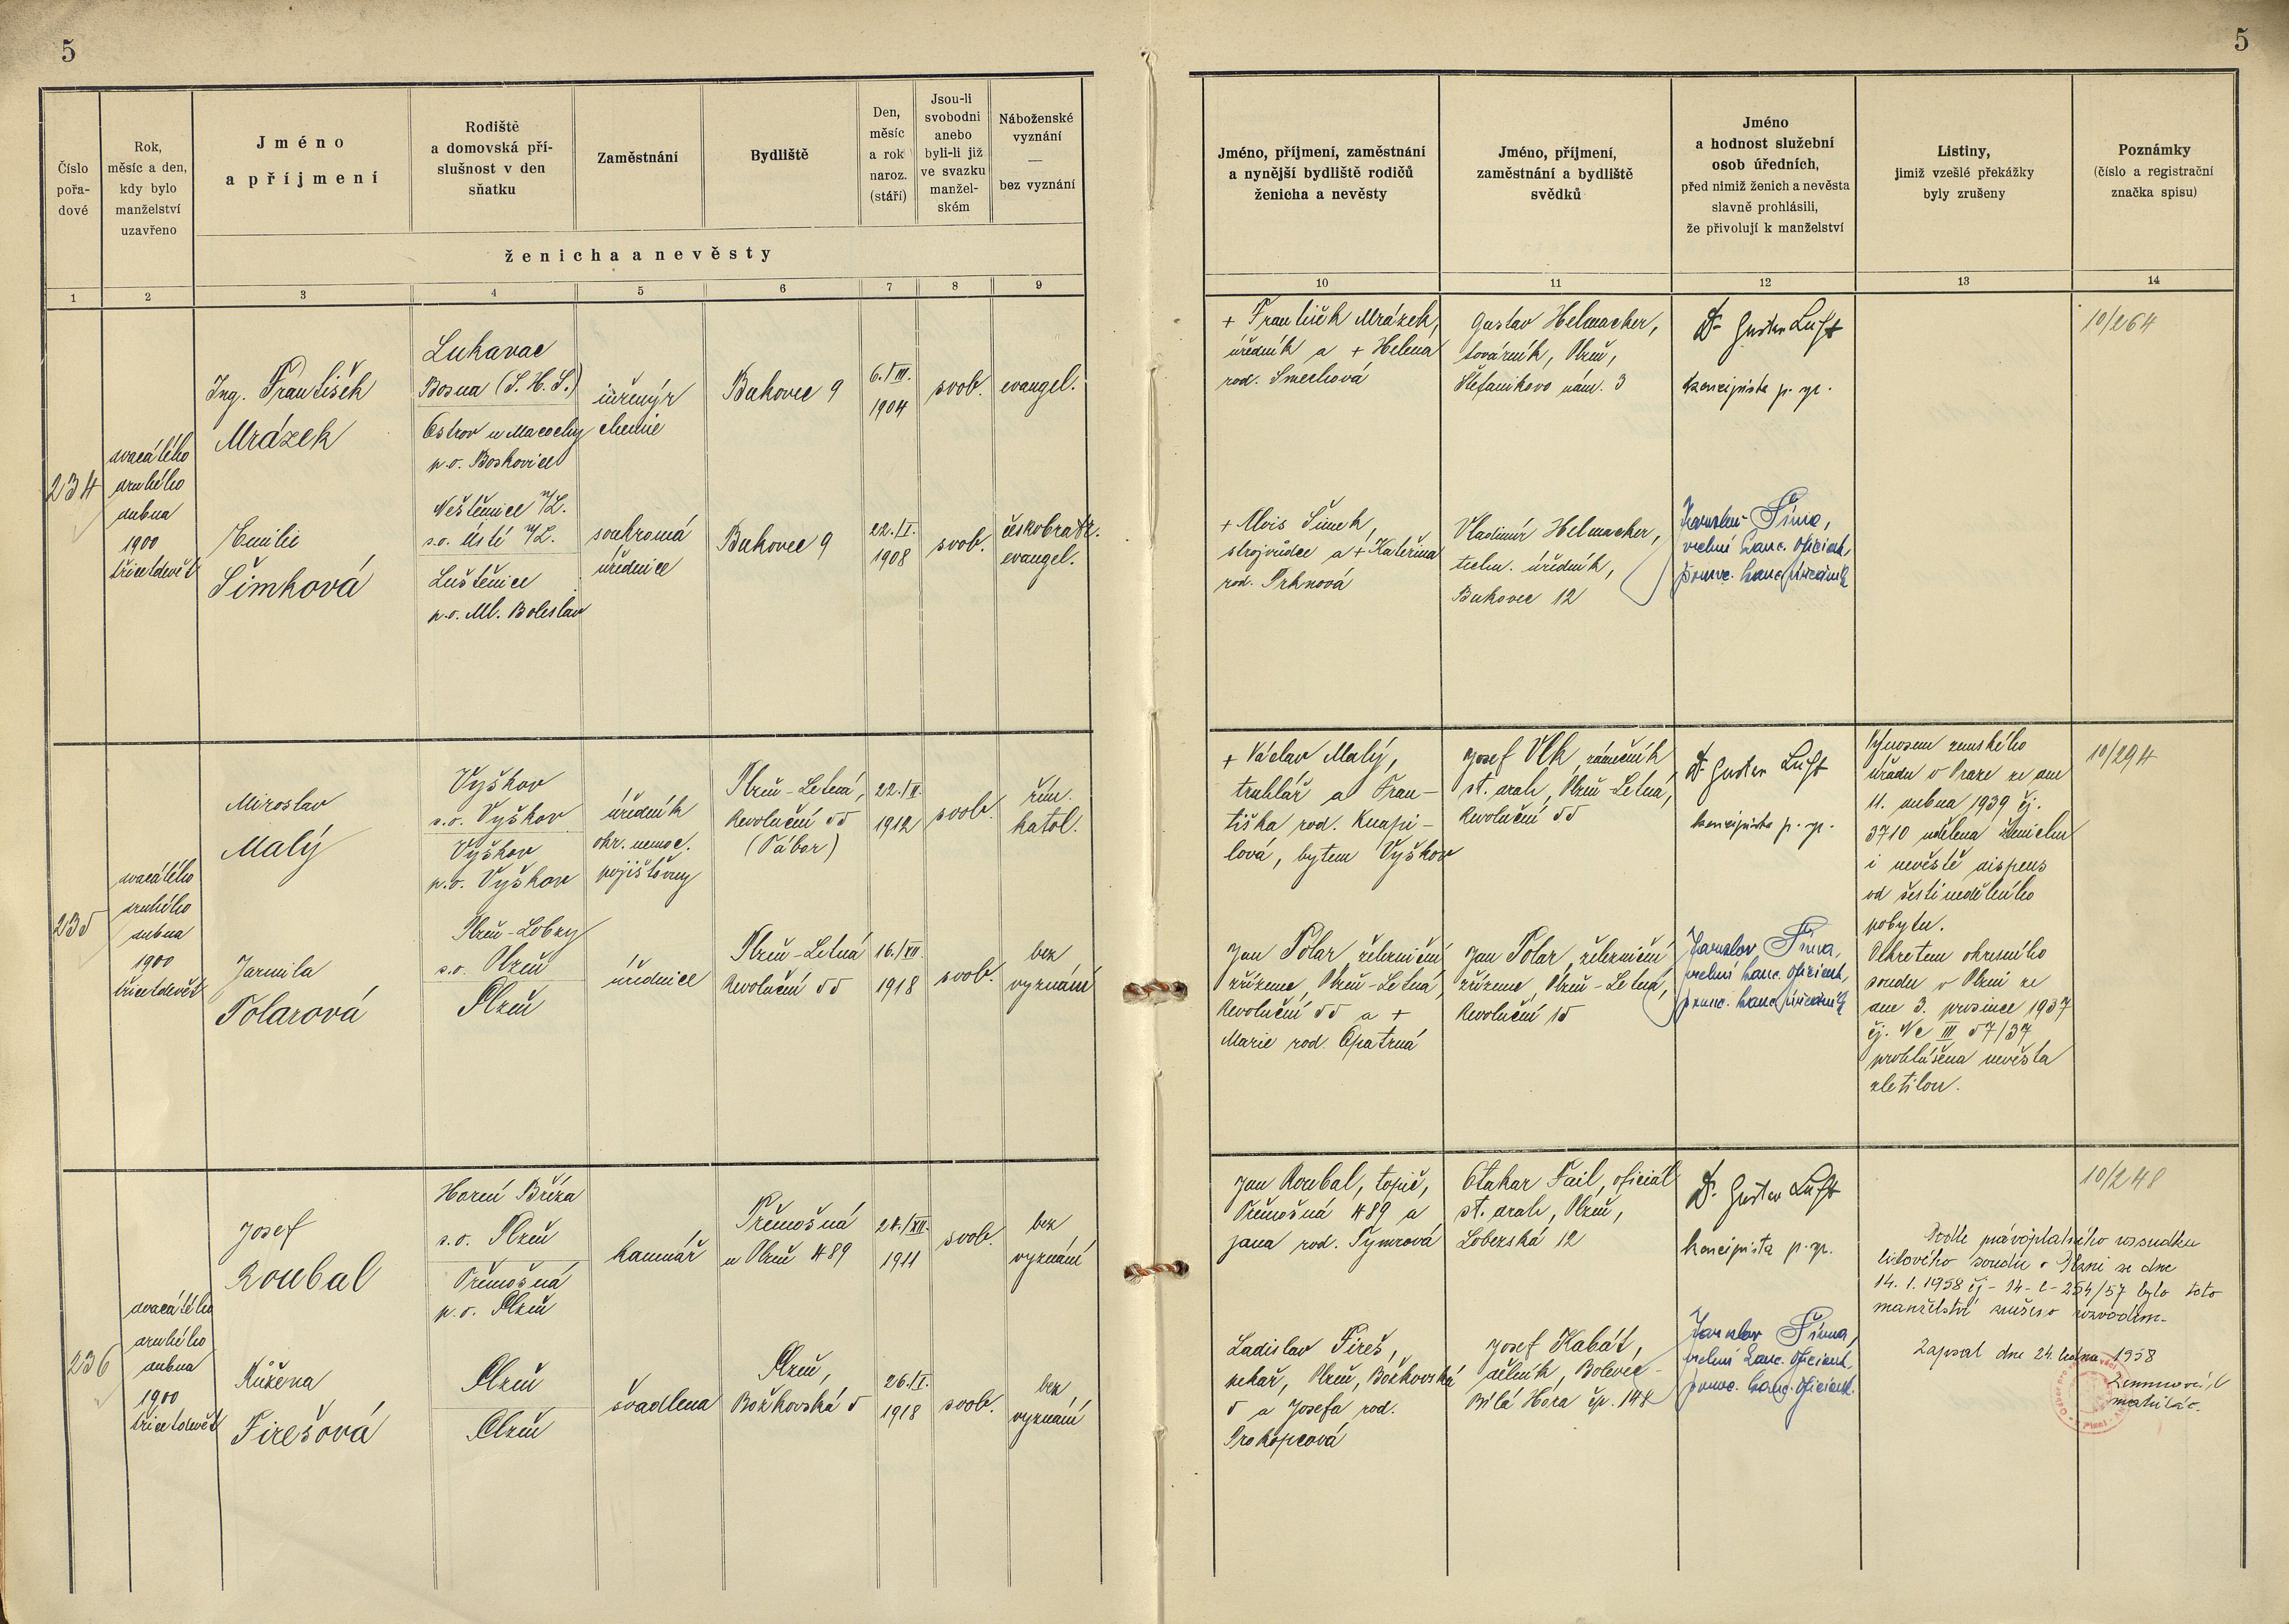 5
5
Číslo
pořa-
dové
Rok,
měsíc a den,
kdy bylo
manželství
uzavřeno
Jméno
a příjmení
Rodiště
a domovská pří-
slušnost v den
sňatku
Zaměstnání
Bydliště
Den,
měsíc
a rok
naroz.
(stáří)
Jsou-li
svobodni
anebo
byli-li již
ve svazku
manžel-
ském
Náboženské
vyznání
—
bez vyznání
ženicha a nevěsty
Jméno, příjmení, zaměstnání
a nynější bydliště rodičů
ženicha a nevěsty
Jméno, příjmení,
zaměstnání a bydliště
svědků
Jméno
a hodnost služební
osob úředních,
před nimiž ženich a nevěsta
slavně prohlásili,
že přivolují k manželství
Listiny,
jimiž vzešlé překážky
byly zrušeny
Poznámky
(číslo a registrační
značka spisu)
1 2 3 4 5 6 7 8 9 10 11 12 13 14
234
dvacátého
druhého
dubna
1900
třicetdevět
Ing. František
Mrázek
Lukavac
Bosna (S.H.S.)
Ostrov u Macochy
p.o. Boskovice
inženýr
chemie
Bukovec 9
6./III.
1904
svob.
evangel.
+ František Mrázek,
úředník a + Helena
rod. Smechová
Gustav Helmacher,
továrník, Plzeň,
Štefanikovo nám. 3
Dr Gustav Luft
koncipista p. sp.
10/264
Emilie
Šimková
Neštěmice n/L.
s.o. Ústí n/L.
Luštěnice
p.o. Ml. Boleslav
soukromá
úřednice
Bukovec 9
22./I.
1908
svob.
českobratr.
evangel.
+ Alois Šimek,
strojvůdce a + Kateřina
rod. Prknová
Vladimír Helmacher,
techn. úředník,
Bukovec 12
Jaroslav Šíma,
vrchní kanc. oficiant,
pomoc. kanc. úředník
235
dvacátého
druhého
dubna
1900
třicetdevět
Miroslav
Malý
Vyškov
s.o. Vyškov
Vyškov
p.o. Vyškov
úředník
okr. nemoc.
pojišťovny
Plzeň-Letná,
Revoluční 55
(Tábor)
22./II.
1912
svob.
řím.
katol.
+ Václav Malý,
truhlář a Fran-
tiška rod. Knapi-
lová, bytem Vyškov
Josef Vlk, zámečník
st. drah, Plzeň-Letná,
Revoluční 55
Dr Gustav Luft
koncipista p. sp.
Výnosem zemského
úřadu v Praze ze dne
11. dubna 1939 čj.
3710 udělena ženichu
i nevěstě dispens
od šestinedělního
pobytu.
Dekretem okresního
soudu v Plzni ze
dne 3. prosince 1937
čj. Nc III 57/37
prohlášena nevěsta
zletilou.
10/294
Jarmila
Polarová
Plzeň-Lobzy
s.o. Plzeň
Plzeň
úřednice
Plzeň-Letná
Revoluční 55
16./XII.
1918
svob.
bez
vyznání
Jan Polar, železniční
zřízenec, Plzeň-Letná,
Revoluční 55 a +
Marie rod. Opatrná
Jan Polar, železniční
zřízenec, Plzeň-Letná,
Revoluční 15
Jaroslav Šíma,
vrchní kanc. oficiant,
pomoc. kanc. úředník
236
dvacátého
druhého
dubna
1900
třicetdevět
Josef
Roubal
Horní Bříza
s.o. Plzeň
Třemošná
p.o. Plzeň
kamnář
Třemošná
u Plzně 489
24./XII.
1911
svob.
bez
vyznání
Jan Roubal, topič,
Třemošná 489 a
Jana rod. Tymrová
Otakar Fail, oficiál
st. drah, Plzeň,
Loberská 12
Dr. Gustav Luft
koncipista p. sp.
10/248
Podle právoplatného rozsudku
lidového soudu v Plzni ze dne
14. 1. 1958 čj - 14-C-254/57 bylo toto
manželství zrušeno rozvodem.
Zapsal dne 24. ledna 1958
matrikář.
Růžena
Firešová
Plzeň
Plzeň
švadlena
Plzeň,
Božkovská 5
26./I.
1918
svob.
bez
vyznání
Ladislav Fireš,
pekař, Plzeň, Božkovská
5 a Josefa rod.
Prokopcová
Josef Kabát,
dělník, Bolevec-
Bílá Hora čp. 148
Jaroslav Šíma,
vrchní kanc. oficiant,
pomoc. kanc. oficiant.